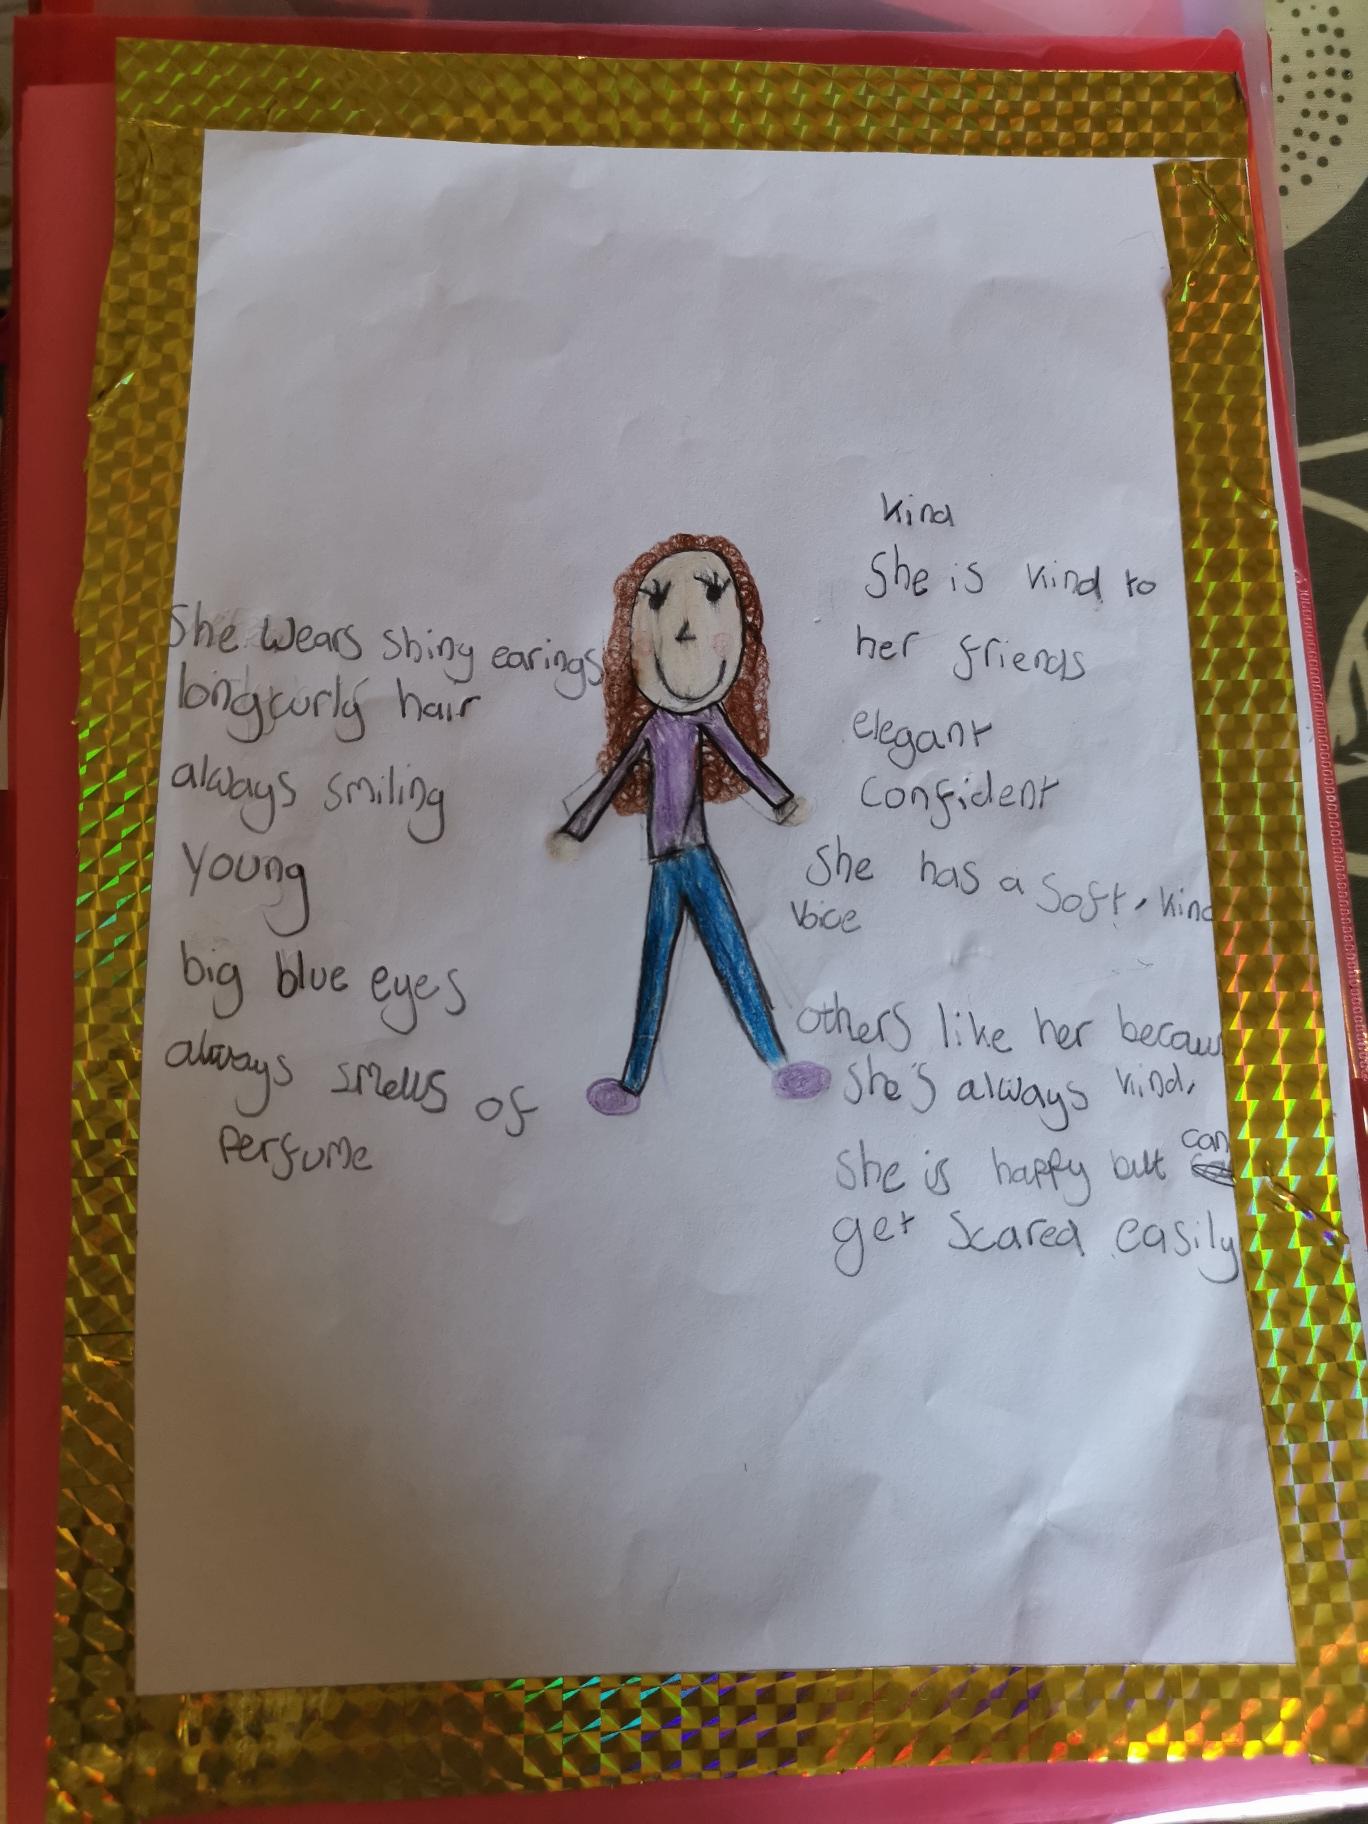 She wears shiny earings
long curly hair
always smiling
young
big blue eyes
always smells of
perfume
kind
She is kind to
her friends
elegant
confident
She has a soft, kind
voice
others like her becau
she's always kind.
she is happy but can
get scared easily